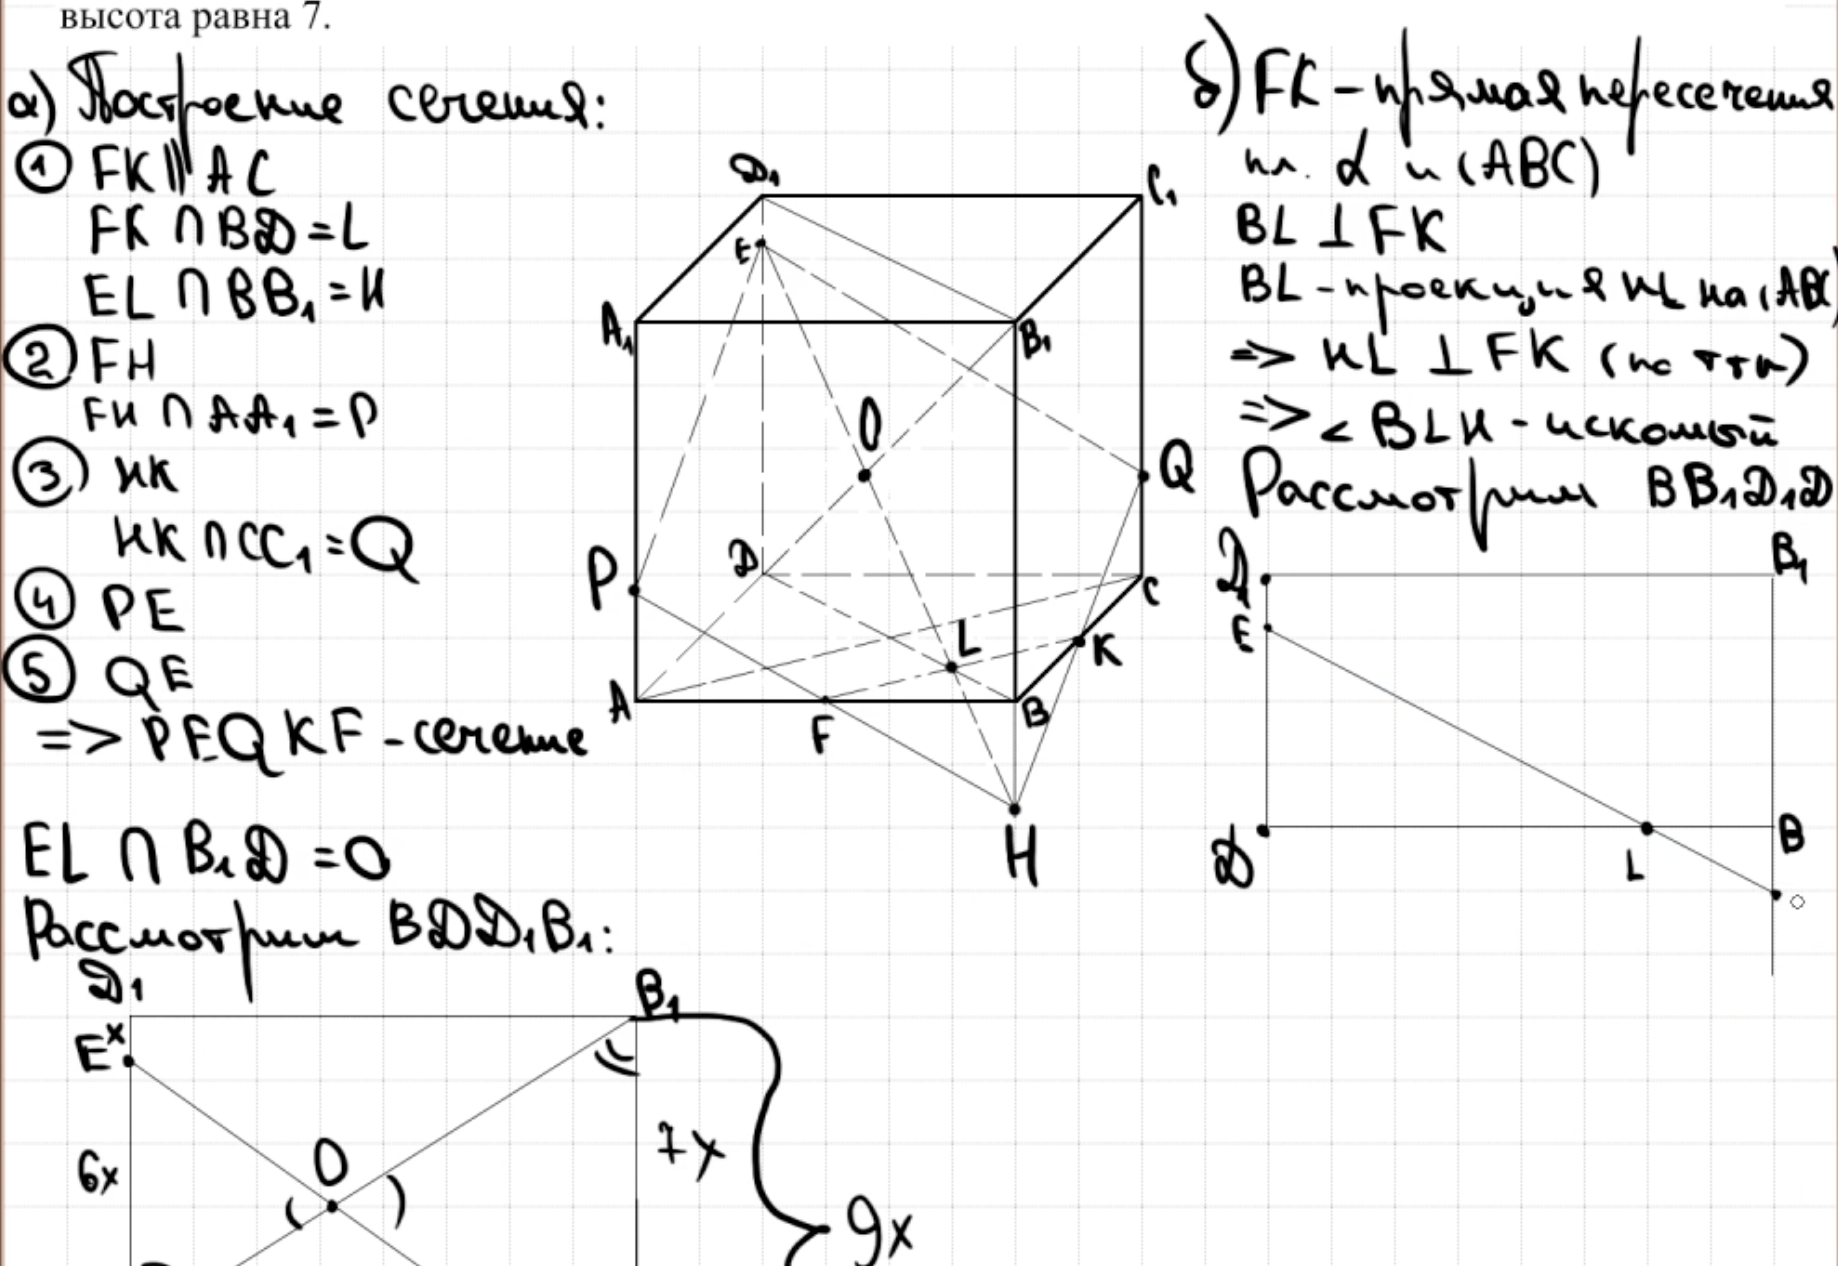 высота равна 7.
а) Построение сечения:
① FK || AC
FK ∩ BD = L
EL ∩ BB₁ = H
② FH
FH ∩ AA₁ = P
③ HK
HK ∩ CC₁ = Q
④ PE
⑤ QE
=> PEQKF - сечение
EL ∩ B₁D = O
Рассмотрим BDD₁B₁:
D₁
B₁
E
x
6x
O
7x
9x
D₁
C₁
E
A₁
B₁
O
Q
P
D
C
L
K
A
F
B
H
б) FK - прямая пересечения
пл. α и (ABC)
BL ⊥ FK
BL - проекция HL на (ABC)
=> HL ⊥ FK (по ттп)
=> ∠BLH - искомый
Рассмотрим BB₁D₁D
D₁
B₁
E
D
L
B